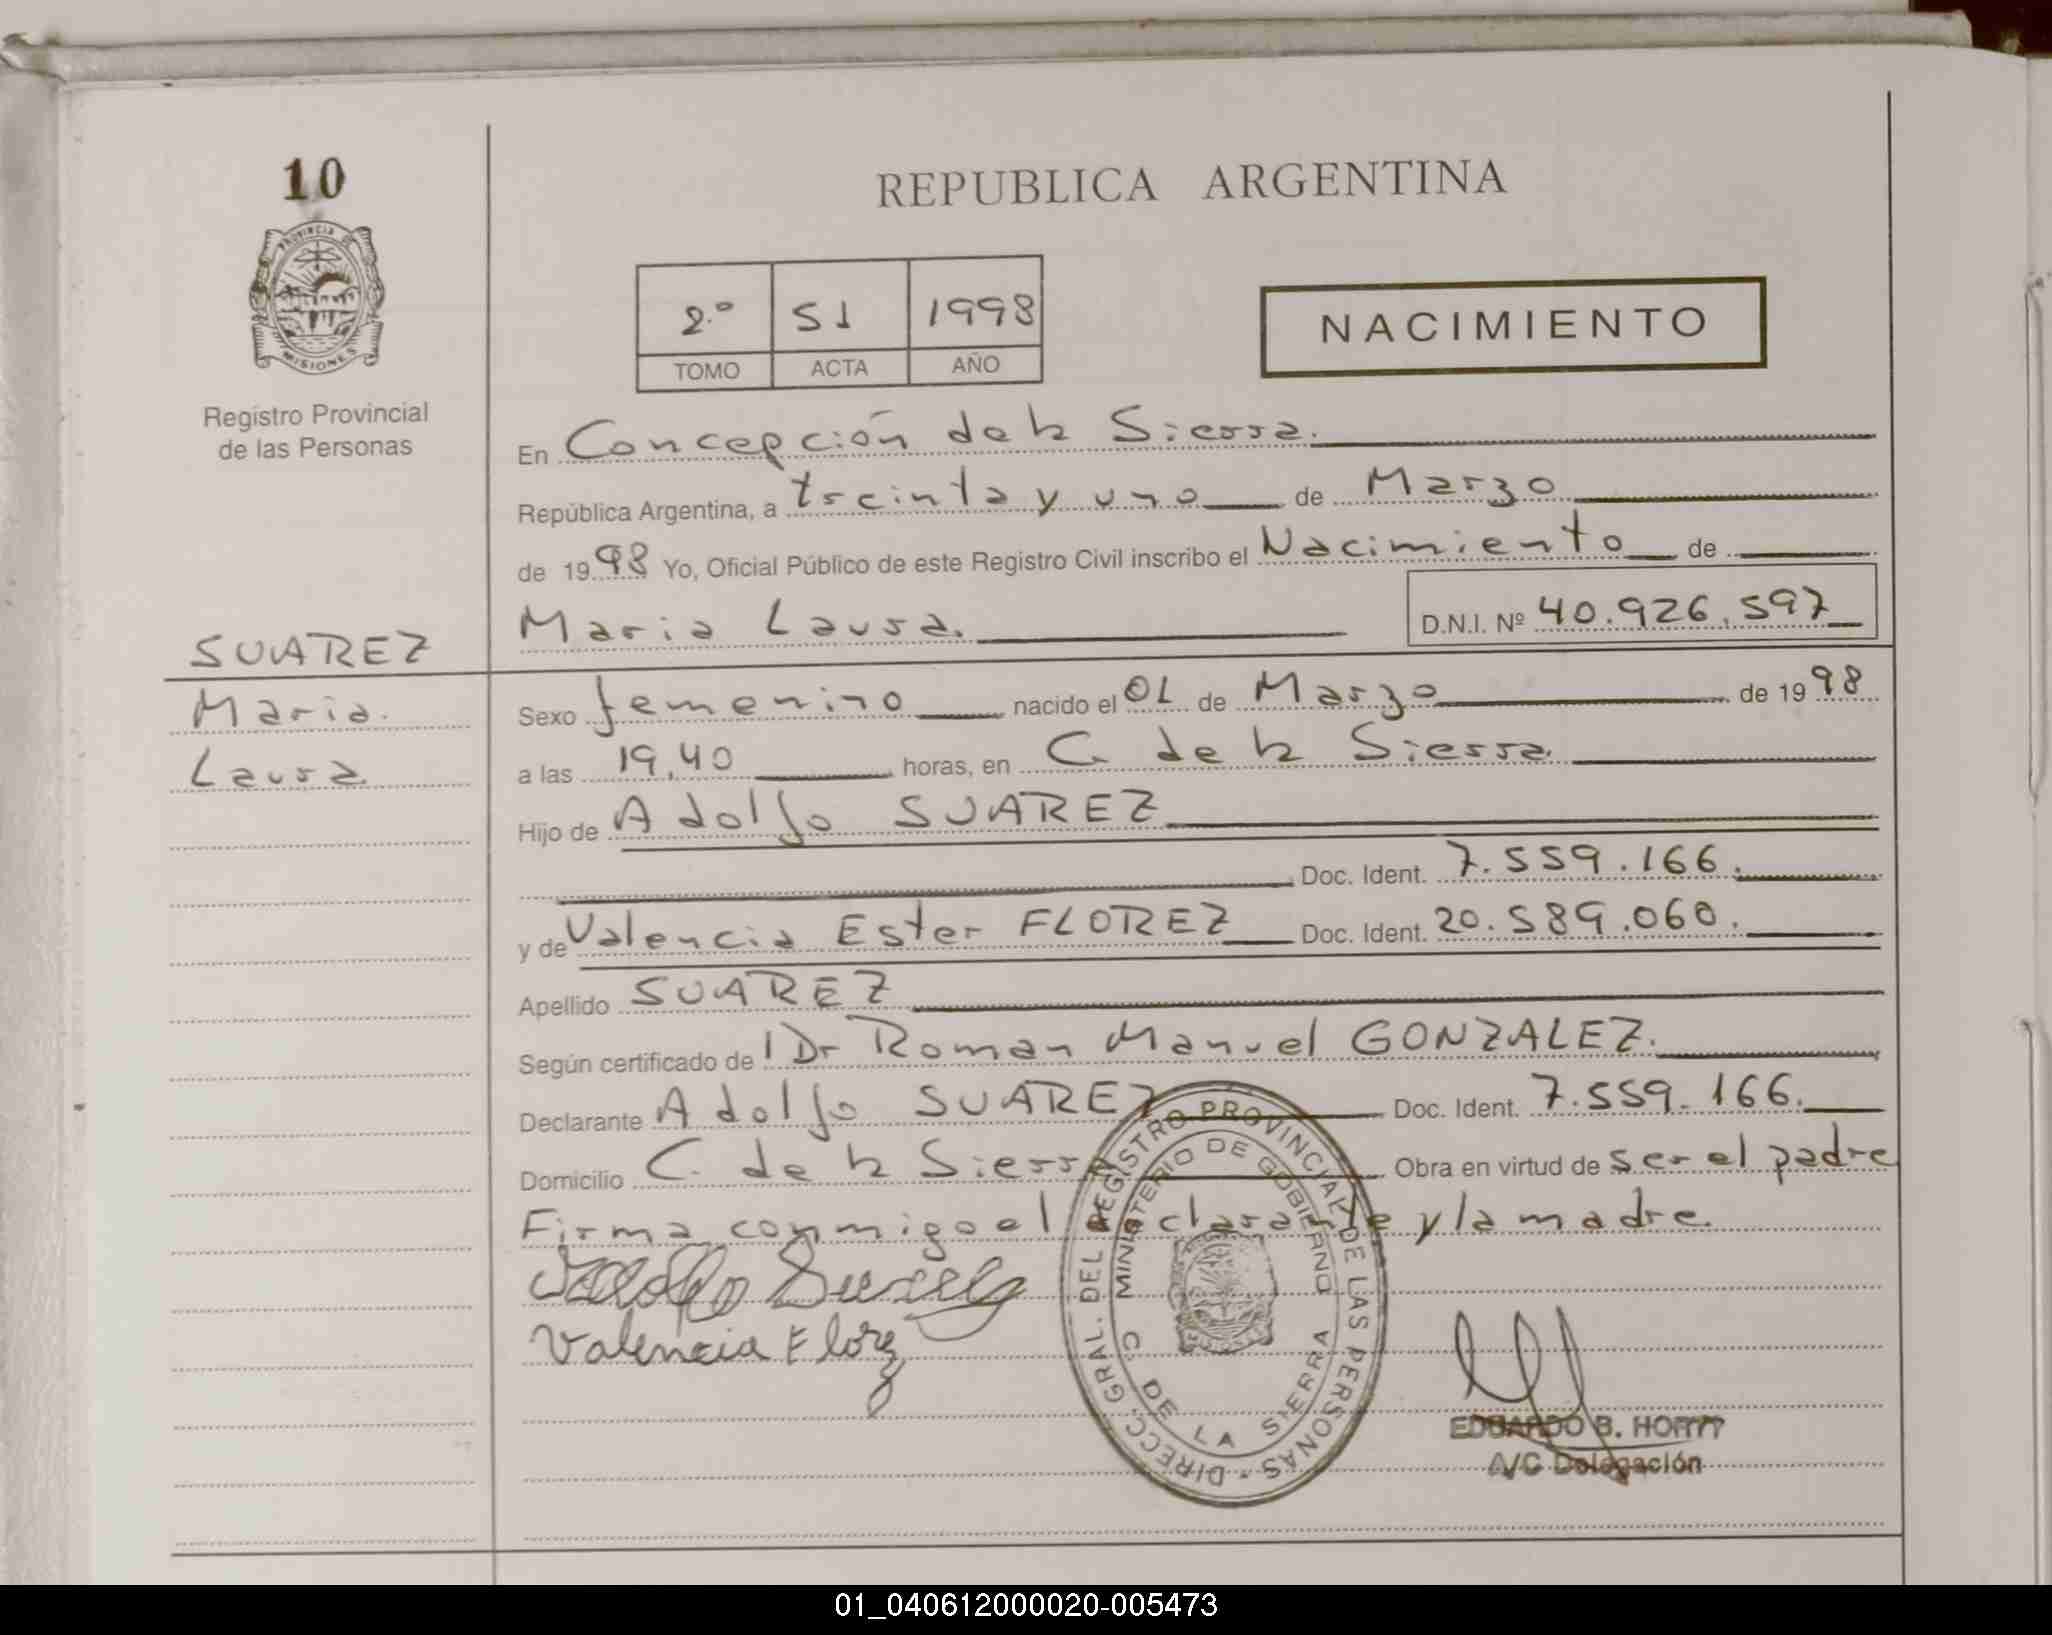 10
PROVINCIA DE
MISIONES
Registro Provincial
de las Personas
SUAREZ
Maria
Laura
REPUBLICA ARGENTINA
2.º 51 1998
TOMO ACTA AÑO
NACIMIENTO
En Concepción de la Sierra.
República Argentina, a treinta y uno de Marzo
de 1998 Yo, Oficial Público de este Registro Civil inscribo el Nacimiento de
Maria Laura. D.N.I. Nº 40.926.597
Sexo femenino nacido el 01 de Marzo de 1998
a las 19,40 horas, en C. de la Sierra.
Hijo de Adolfo SUAREZ
Doc. Ident. 7.559.166.
y de Valencia Ester FLOREZ Doc. Ident. 20.589.060.
Apellido SUAREZ
Según certificado de l Dr Roman Manuel GONZALEZ.
Declarante Adolfo SUAREZ Doc. Ident. 7.559.166.
Domicilio C. de la Sierra Obra en virtud de ser el padre
Firma conmigo el declarante y la madre.
Valencia Florez
DIRECC. GRAL. DEL REGISTRO PROVINCIAL DE LAS PERSONAS
MINISTERIO DE GOBIERNO
C. DE LA SIERRA
EDUARDO B.
A/C Delegación
01_040612000020-005473